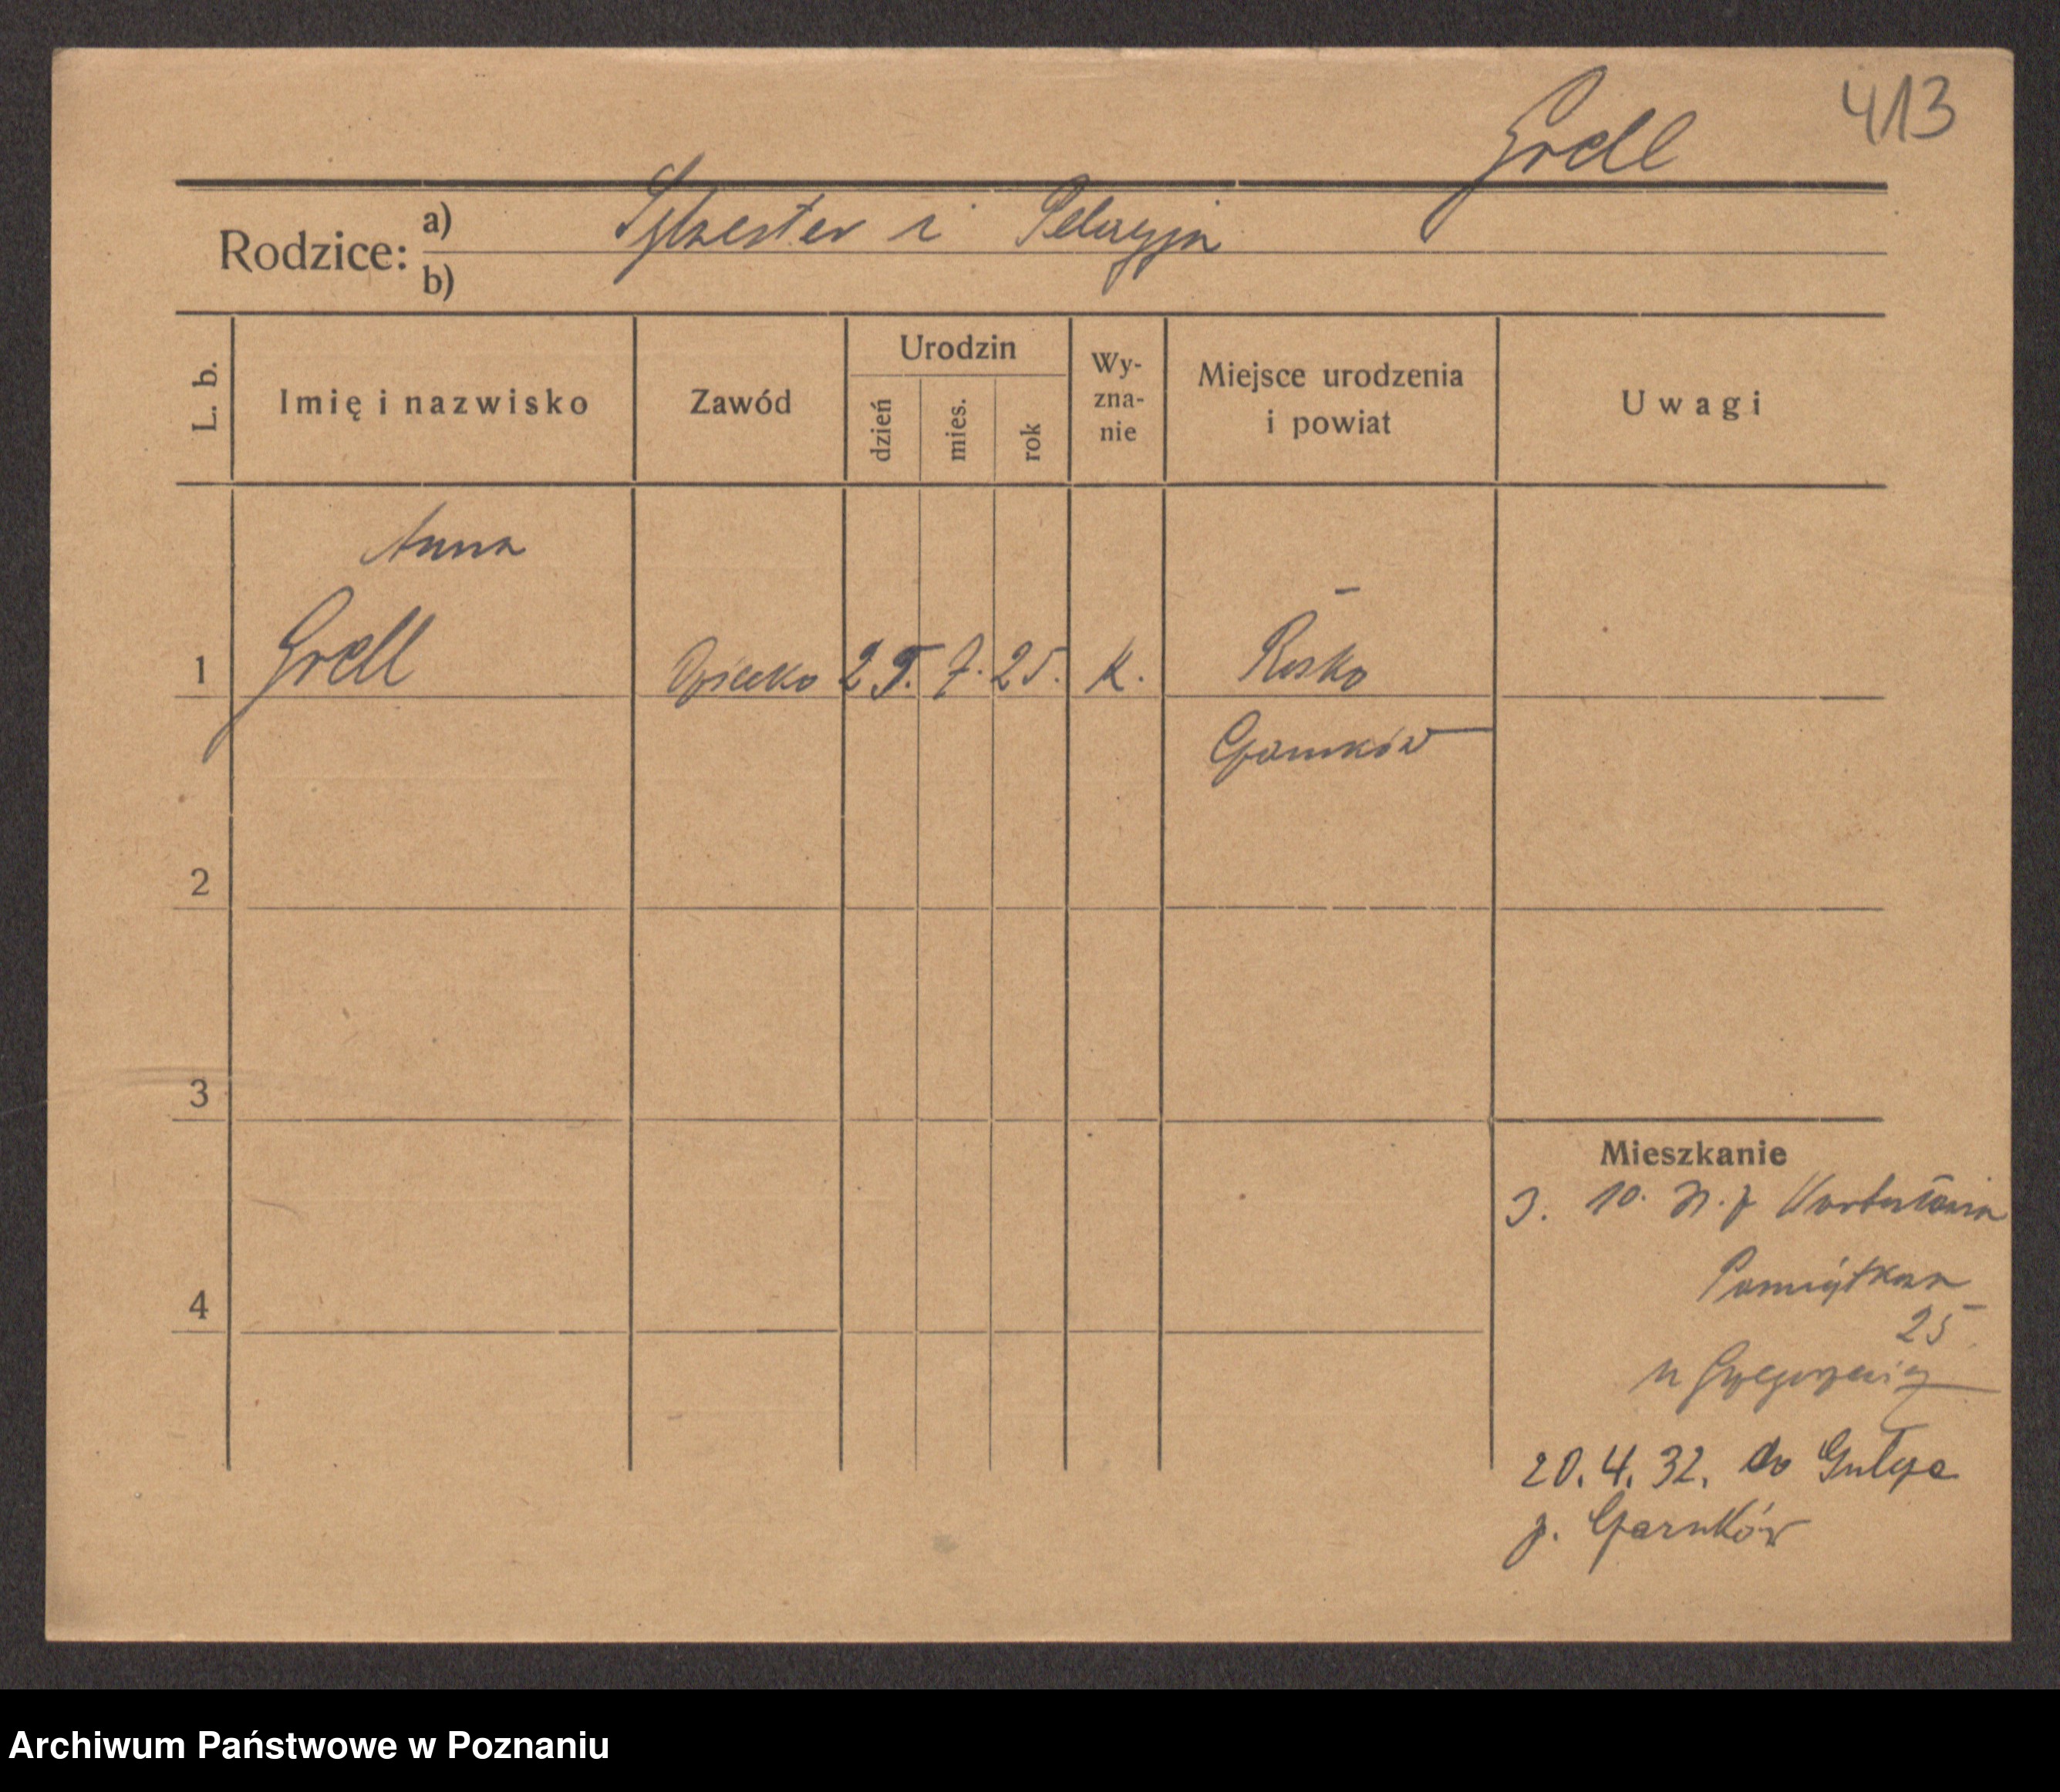 413
Grell
Rodzice: a) Sylwester i Pelagja
b)
L. b.
Imię i nazwisko
Zawód
Urodzin
dzień
mies.
rok
Wy-
zna-
nie
Miejsce urodzenia
i powiat
Uwagi
Anna
1 Grell dziecko 25. 7. 25. k. Rosko
Czarnków
2
3
4
Mieszkanie
3. 10.
Pamiątkowa
25
u
20. 4. 32. do Gulcza
p. Czarnków
Archiwum Państwowe w Poznaniu